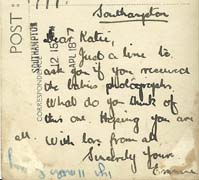 Southampton
Dear Katie,
Just a line to
ask you if you received
the babies photographs.
What do you think of
this one. Hoping you are
all. With love from all
Sincerely Yours
Emma
POST
CORRESPOND
SOUTHAMPTON
12 15 PM
APL 18